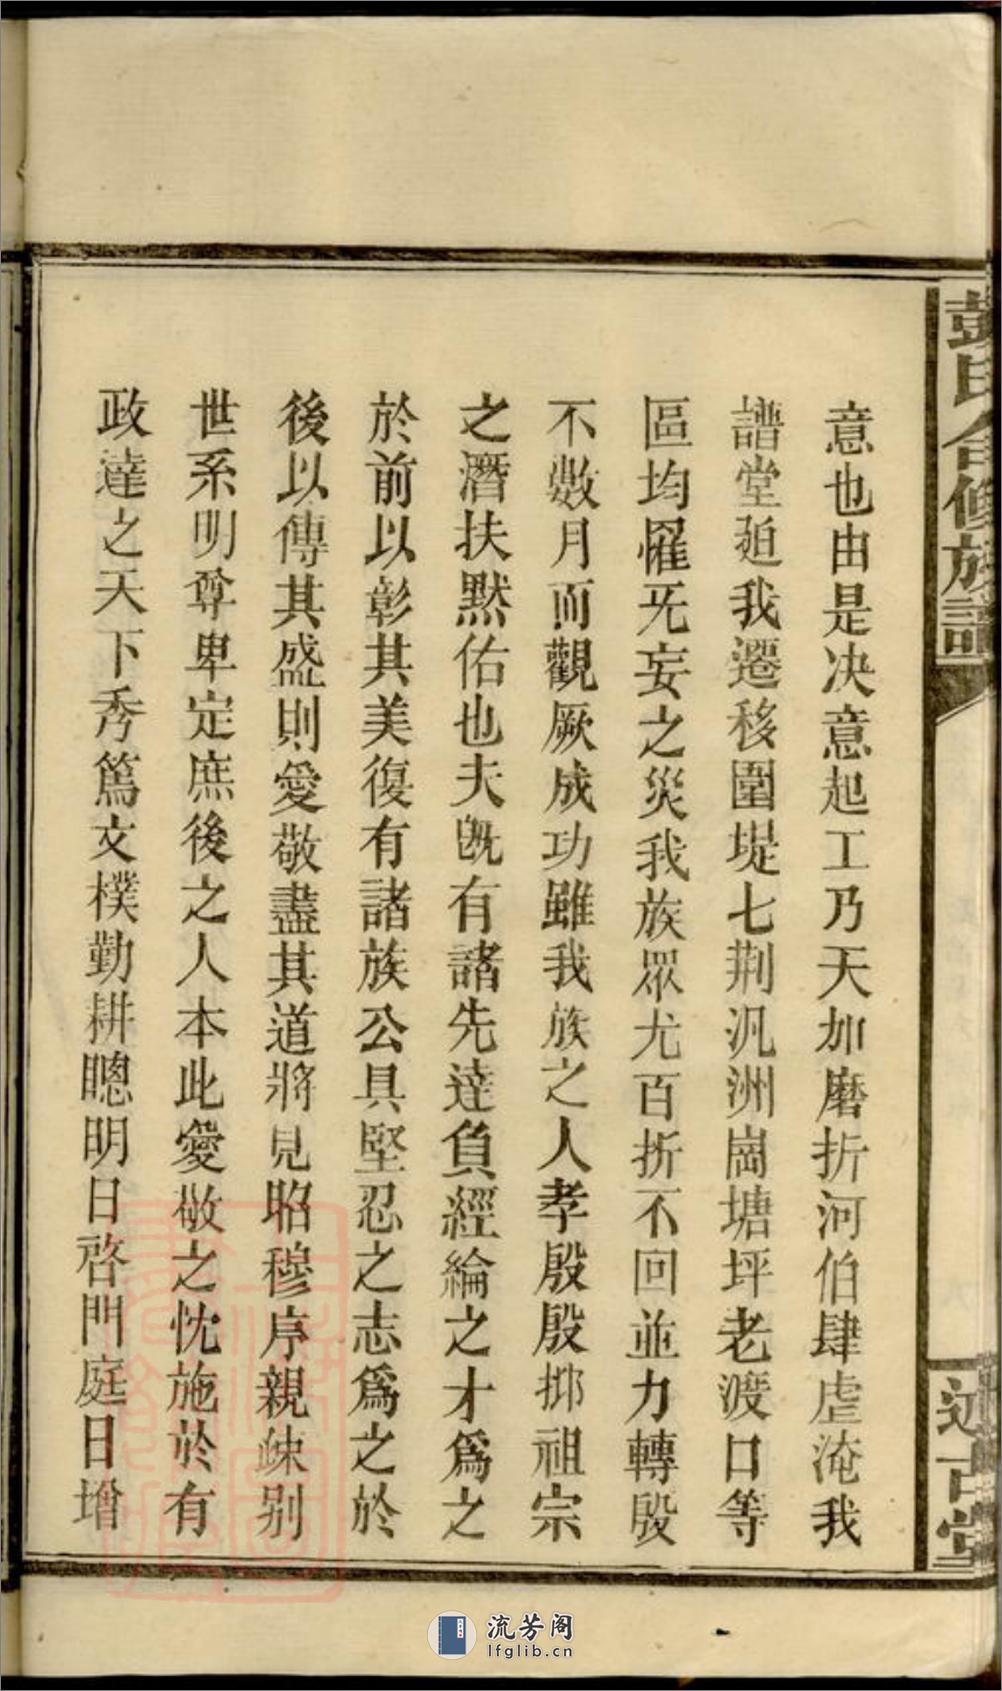 彭氏合修族譜
述古堂
意也由是决意起工乃天加磨折河伯肆虐淹我
譜堂廹我遷移圍堤七荆汎洲崗塘坪老渡口等
區均罹旡妄之災我族眾尤百折不回並力轉殷
不數月而觀厥成功雖我族之人孝殷殷抑祖宗
之潛扶黙佑也夫旣有諸先達負經綸之才爲之
於前以彰其美復有諸族公具堅忍之志爲之於
後以傳其盛則愛敬盡其道將見昭穆序親疎别
世系明尊卑定庶後之人本此愛敬之忱施於有
政達之天下秀篤文樸勤耕聰明日啓門庭日增
流芳阁
lfglib.cn